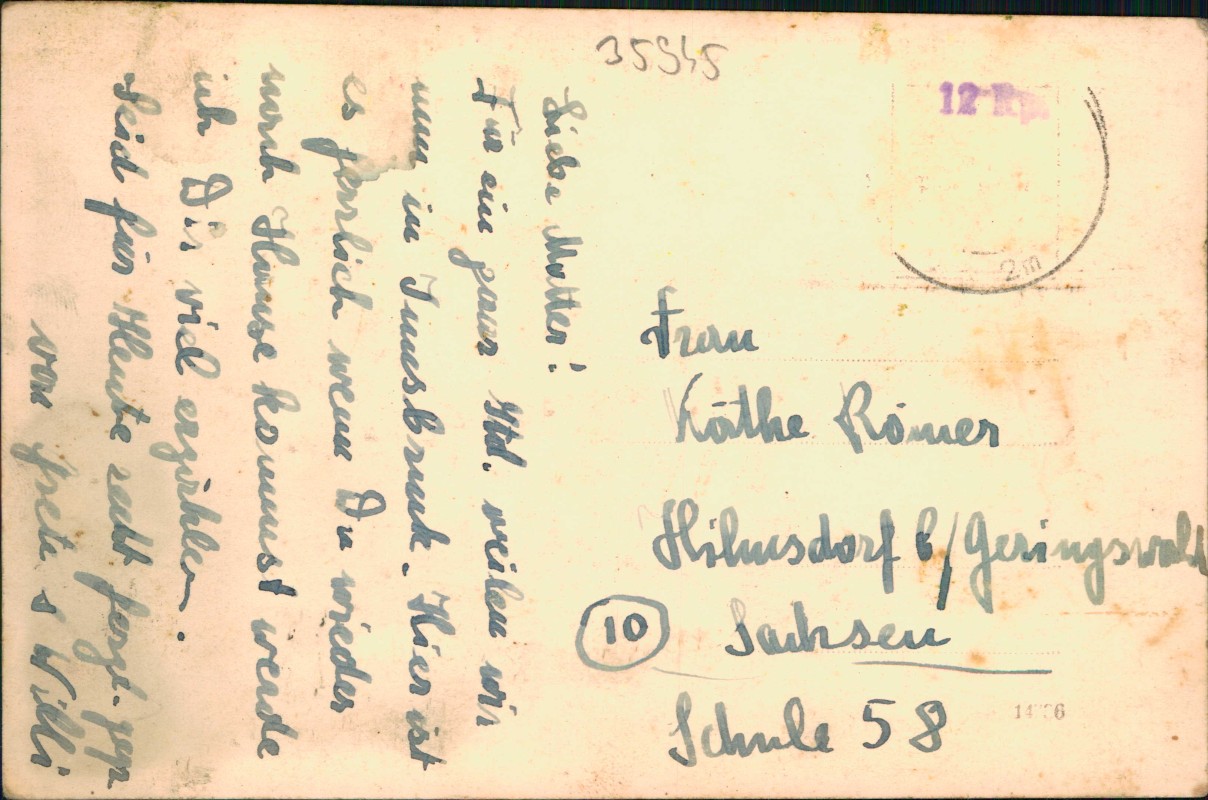 35945
12 Rp.
2m
Liebe Mutter!
Für ein paar Std. weilen wir
nun in Innsbruck. Hier ist
es herrlich wenn Du wieder
nach Hause kommst werde
ich Dir viel erzählen.
Seid für Heute recht herzl. gegr.
von Willi
Frau
Käthe Römer
Hilmsdorf b/Geringswald
10 Sachsen
Schule 58